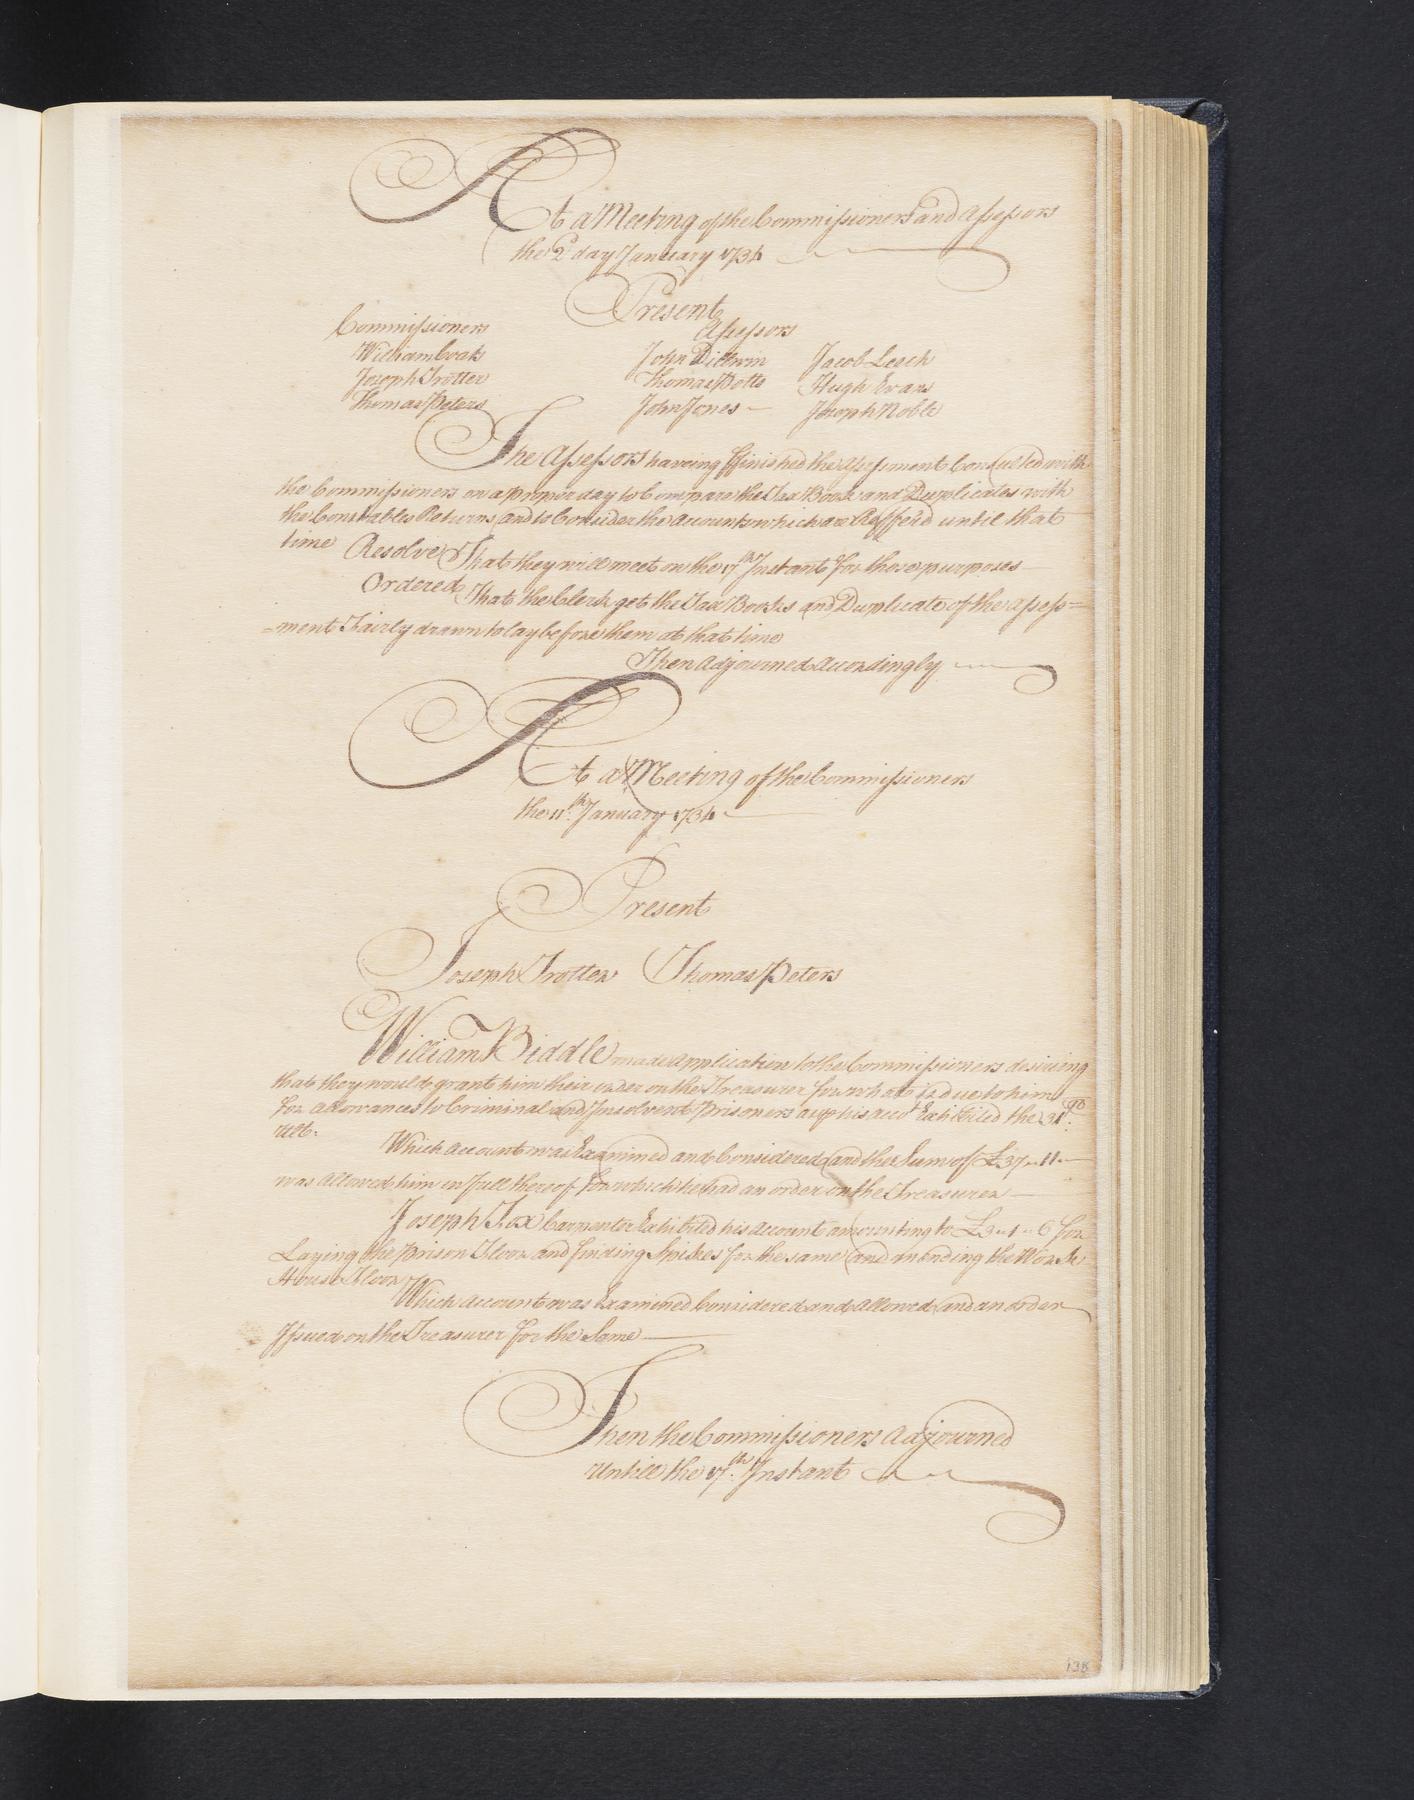 At a Meeting of the Commissioners and Assessors
the 2d day January 1734
Present
Commissioners Assessors
William Cvats John Dillwin Jacob Leech
Joseph Trotter Thomas Potts Hugh Evans
Thomas Peters John Jones Joseph Noble
The Assessors haveing ffinished the Assessment Consulted with
the Commissioners on a proper day to Compare the Tax Book and Duplicates with
the Constables Returns and to Consider the Accounts which are Reffer'd until that
time Resolve That they will meet on the 17th Instant for those purposes
Ordered That the Clerk get the Tax Books and Duplicate of the Assess=
=ment Fairly drawn to lay before them at that time
Then Adjourned Accordingly
At a Meeting of the Commissioners
the 11th January 1734
Present
Joseph Trotter Thomas Peters
William Biddle made Application to the Commissioners desireing
that they would grant him their order on the Treasurer for what is due to him
for allowances to Criminal and Insolvent Prisoners as p his accot Exhibited the 31st
Ult:
Which Account was Examined and Considered and the Sum of £37 - 11 -
was Allowed him in full thereof for which he had an order on the Treasurer
Joseph Fox Carpenter Exhibited his Account amounting to £3 - 1 - 6 for
Laying the Prison Floor and finding Spikes for the same and mending the Work
House Floor
Which Account was Examined Considered and Allowed and an order
Issued on the Treasurer for the Same
Then the Commissioners Adjourned
Untill the 17th Instant
138